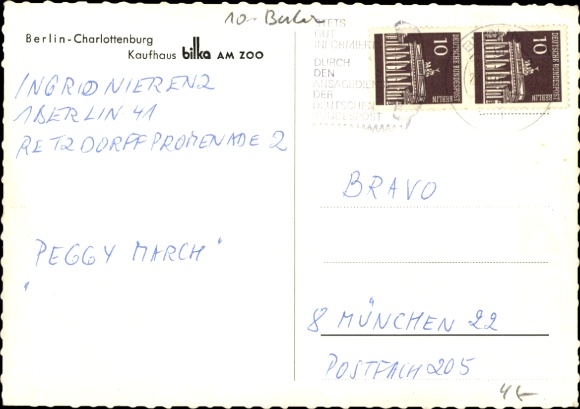 10.- Berlin
Berlin-Charlottenburg
Kaufhaus bilka AM ZOO
INGRID NIERENZ
1 BERLIN 41
RETZDORFFPROMENADE 2
"PEGGY MARCH"
STETS
GUT
INFORMIERT
DURCH
DEN
ANSAGEDIENST
DER
DEUTSCHEN
BUNDESPOST
10
DEUTSCHE BUNDESPOST
BERLIN
10
DEUTSCHE BUNDESPOST
BERLIN
BRAVO
8 MÜNCHEN 22
POSTFACH 205